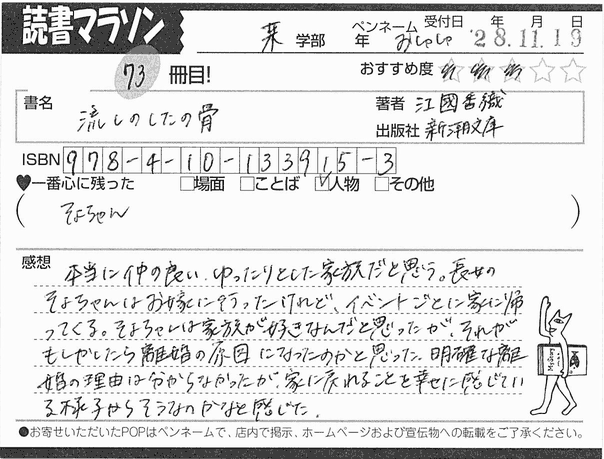 読書マラソン
薬 学部 年 ペンネーム おしゃしゃ 受付日 年 月 日 '28.11.19
73 冊目! おすすめ度
書名 流しのしたの骨
著者 江國香織
出版社 新潮文庫
ISBN 978-4-10-133915-3
♥一番心に残った □場面 □ことば ☑人物 □その他
( そよちゃん )
感想
本当に仲の良い、ゆったりとした家族だと思う。長女の
そよちゃんはお嫁に行ったけれど、イベントごとに家に帰
ってくる。そよちゃんは家族が好きなんだと思ったが、それが
もしかしたら離婚の原因になったのかと思った。明確な離
婚の理由は分からなかったが、家に戻れることを幸せに感じてい
る様子からそうなのかなと感じた。
●お寄せいただいたPOPはペンネームで、店内で掲示、ホームページおよび宣伝物への転載をご了承ください。